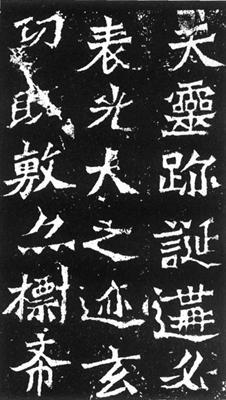 夫靈跡誕遘必
表光大之迹玄
功既敷亦標希